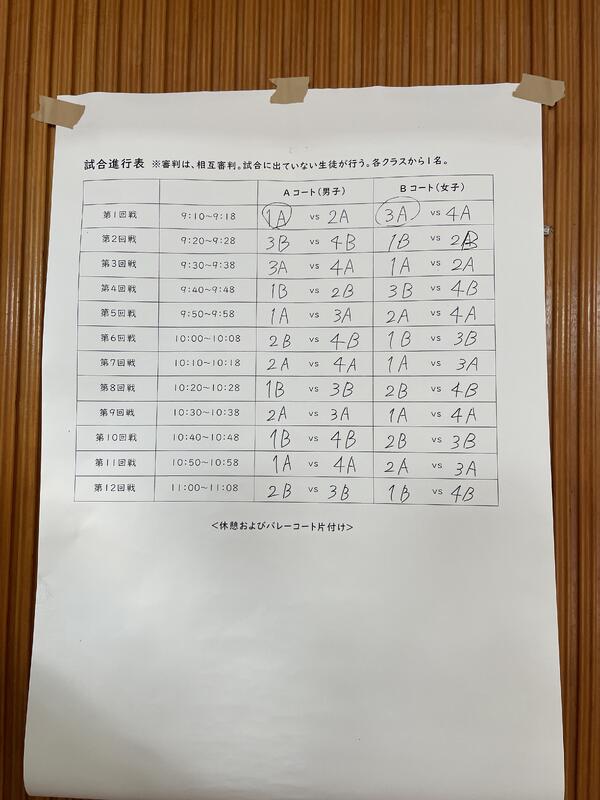 試合進行表 ※審判は、相互審判。試合に出ていない生徒が行う。各クラスから1名。
Aコート(男子) Bコート(女子)
第1回戦 9:10~9:18 1A vs 2A 3A vs 4A
第2回戦 9:20~9:28 3B vs 4B 1B vs 2B
第3回戦 9:30~9:38 3A vs 4A 1A vs 2A
第4回戦 9:40~9:48 1B vs 2B 3B vs 4B
第5回戦 9:50~9:58 1A vs 3A 2A vs 4A
第6回戦 10:00~10:08 2B vs 4B 1B vs 3B
第7回戦 10:10~10:18 2A vs 4A 1A vs 3A
第8回戦 10:20~10:28 1B vs 3B 2B vs 4B
第9回戦 10:30~10:38 2A vs 3A 1A vs 4A
第10回戦 10:40~10:48 1B vs 4B 2B vs 3B
第11回戦 10:50~10:58 1A vs 4A 2A vs 3A
第12回戦 11:00~11:08 2B vs 3B 1B vs 4B
<休憩およびバレーコート片付け>